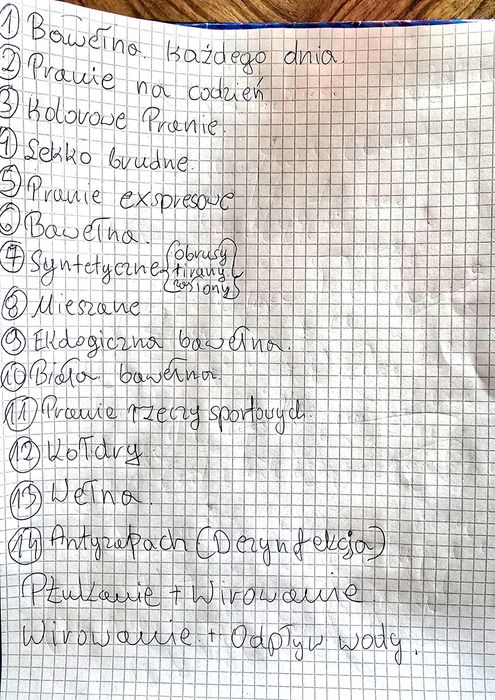 1 Bawełna. każdego dnia.
2 Pranie na codzień
3 Kolorowe Pranie.
4 Lekko brudne.
5 Pranie exspresowe
6 Bawełna.
7 Syntetyczne (obrusy
firany
)
8 Mieszane
9 Ekologiczna bawełna.
10 Biała bawełna.
11 Pranie rzeczy sportowych.
12 Kołdry
13 Wełna.
14 Antyzapach (Dezynfekcja)
Płukanie + Wirowanie.
Wirowanie + Odpływ wody.